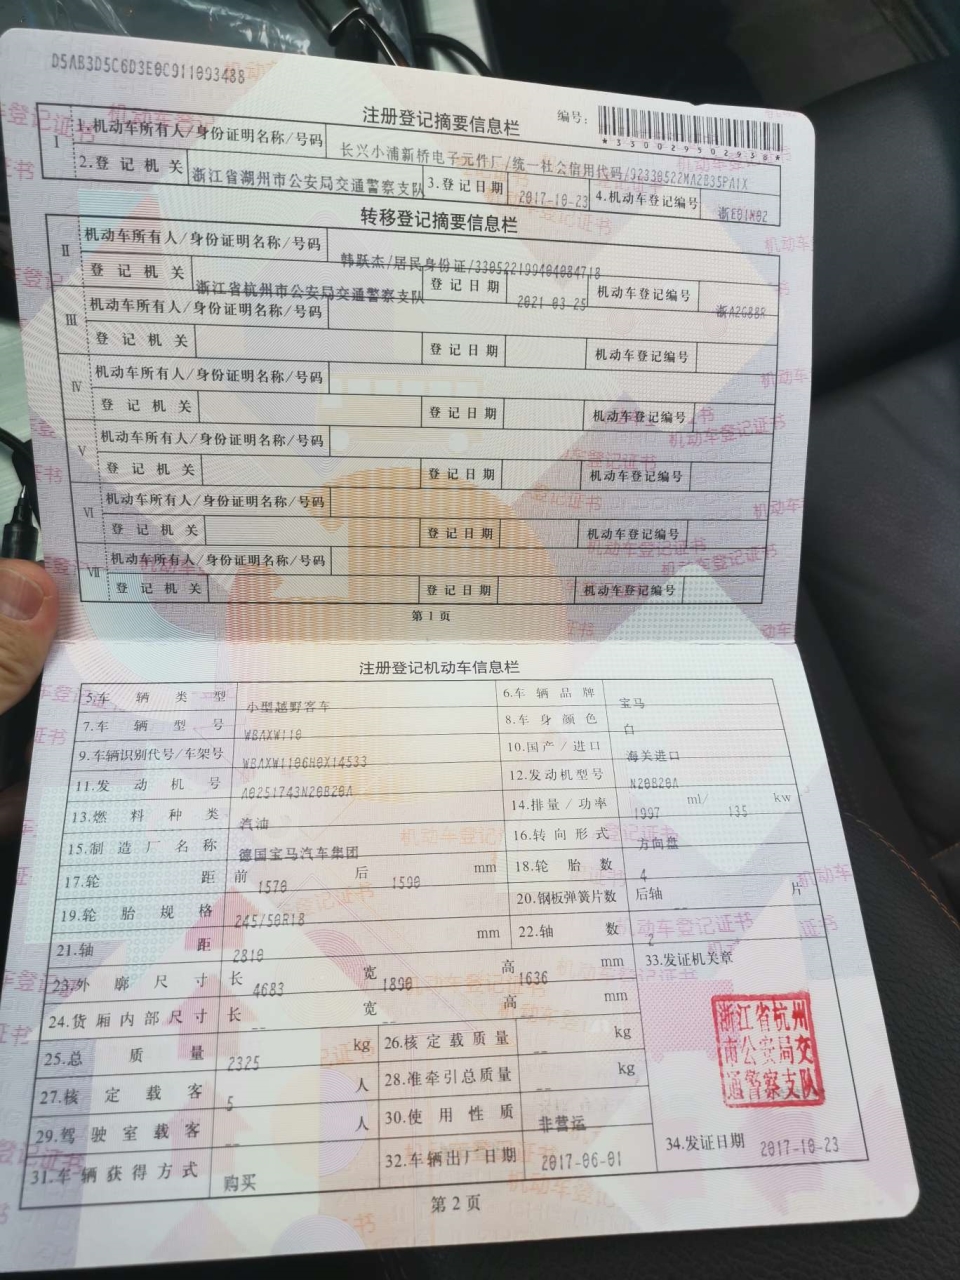 D5AB3D5C6D3E0C911093488
注册登记摘要信息栏 编号:
*330029502938*
Ⅰ 1.机动车所有人/身份证明名称/号码 长兴小浦新桥电子元件厂/统一社会信用代码/92330522MA2B35PA1X
2.登记机关 浙江省湖州市公安局交通警察支队 3.登记日期 2017-10-23 4.机动车登记编号 浙E01M02
转移登记摘要信息栏
Ⅱ 机动车所有人/身份证明名称/号码 韩跃杰/居民身份证/330522199404084718
登记机关 浙江省杭州市公安局交通警察支队 登记日期 2021-03-25 机动车登记编号
Ⅲ 机动车所有人/身份证明名称/号码
登记机关 登记日期 机动车登记编号
Ⅳ 机动车所有人/身份证明名称/号码
登记机关 登记日期 机动车登记编号
Ⅴ 机动车所有人/身份证明名称/号码
登记机关 登记日期 机动车登记编号
Ⅵ 机动车所有人/身份证明名称/号码
登记机关 登记日期 机动车登记编号
Ⅶ 机动车所有人/身份证明名称/号码
登记机关 登记日期 机动车登记编号
第1页
注册登记机动车信息栏
5.车辆类型 小型越野客车 6.车辆品牌 宝马
7.车辆型号 WBAXW110 8.车身颜色 白
9.车辆识别代号/车架号 WBAXW1106H0X14533 10.国产/进口 海关进口
11.发动机号 A0251743N20B20A 12.发动机型号 N20B20A
13.燃料种类 汽油 14.排量/功率 1997 ml/ 135 kw
15.制造厂名称 德国宝马汽车集团 16.转向形式 方向盘
17.轮距 前 1570 后 1590 mm 18.轮胎数 4
19.轮胎规格 245/50R18 20.钢板弹簧片数 后轴 -- 片
21.轴距 2810 mm 22.轴数 2
23.外廓尺寸 长 4683 宽 1890 高 1636 mm 33.发证机关章
24.货厢内部尺寸 长 -- 宽 -- 高 -- mm
25.总质量 2325 kg 26.核定载质量 -- kg
27.核定载客 5 人 28.准牵引总质量 -- kg
29.驾驶室载客 -- 人 30.使用性质 非营运
31.车辆获得方式 购买 32.车辆出厂日期 2017-06-01 34.发证日期 2017-10-23
浙江省杭州
市公安局交
通警察支队
第2页